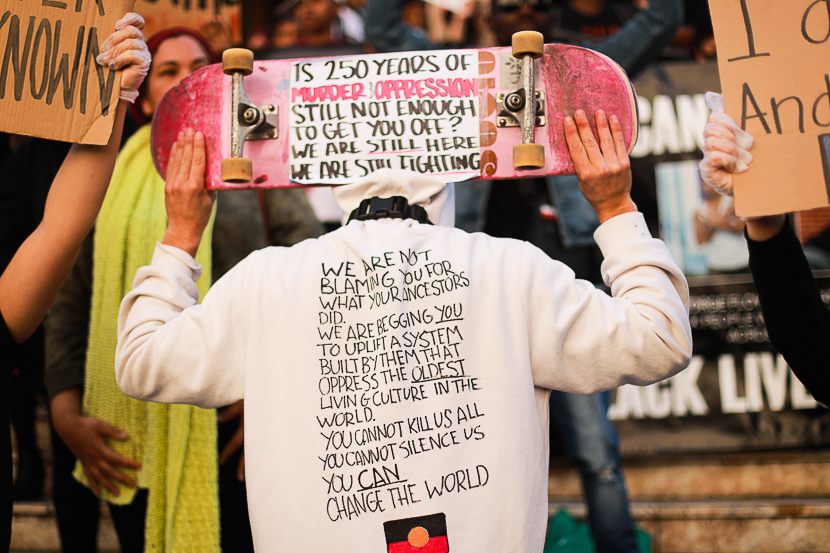 KNOWN
I
And
IS 250 YEARS OF
MURDER & OPPRESSION
STILL NOT ENOUGH
TO GET YOU OFF?
WE ARE STILL HERE
WE ARE STILL FIGHTING
WE ARE NOT
BLAMING YOU FOR
WHAT YOUR ANCESTORS
DID.
WE ARE BEGGING YOU
TO UPLIFT A SYSTEM
BUILT BY THEM THAT
OPPRESS THE OLDEST
LIVING CULTURE IN THE
WORLD.
YOU CANNOT KILL US ALL
YOU CANNOT SILENCE US
YOU CAN
CHANGE THE WORLD
CAN
BLACK LIVE